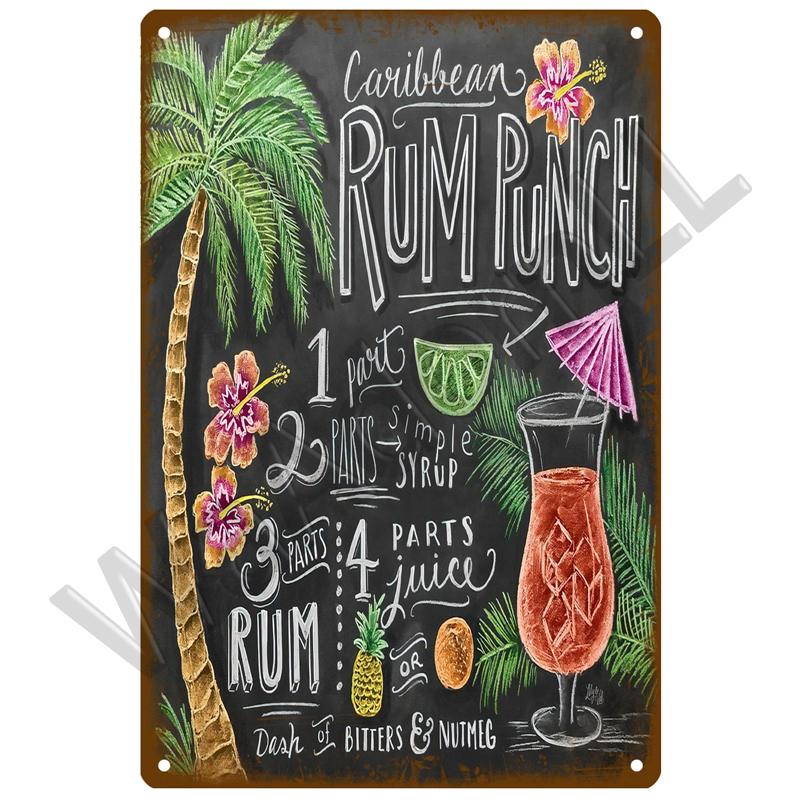 Caribbean
RUM PUNCH
1 part
2 PARTS simple
SYRUP
3 PARTS
RUM
4 PARTS
juice
OR
Dash of BITTERS & NUTMEG